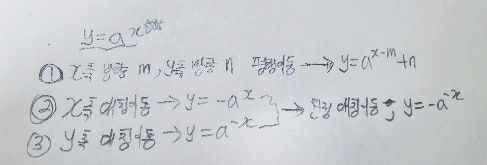 y=aˣ
① x축 방향 m, y축 방향 n 평행이동 → y=aˣ⁻ᵐ+n
② x축 대칭이동 → y=-aˣ
③ y축 대칭이동 → y=a⁻ˣ → 원점 대칭이동; y=-a⁻ˣ